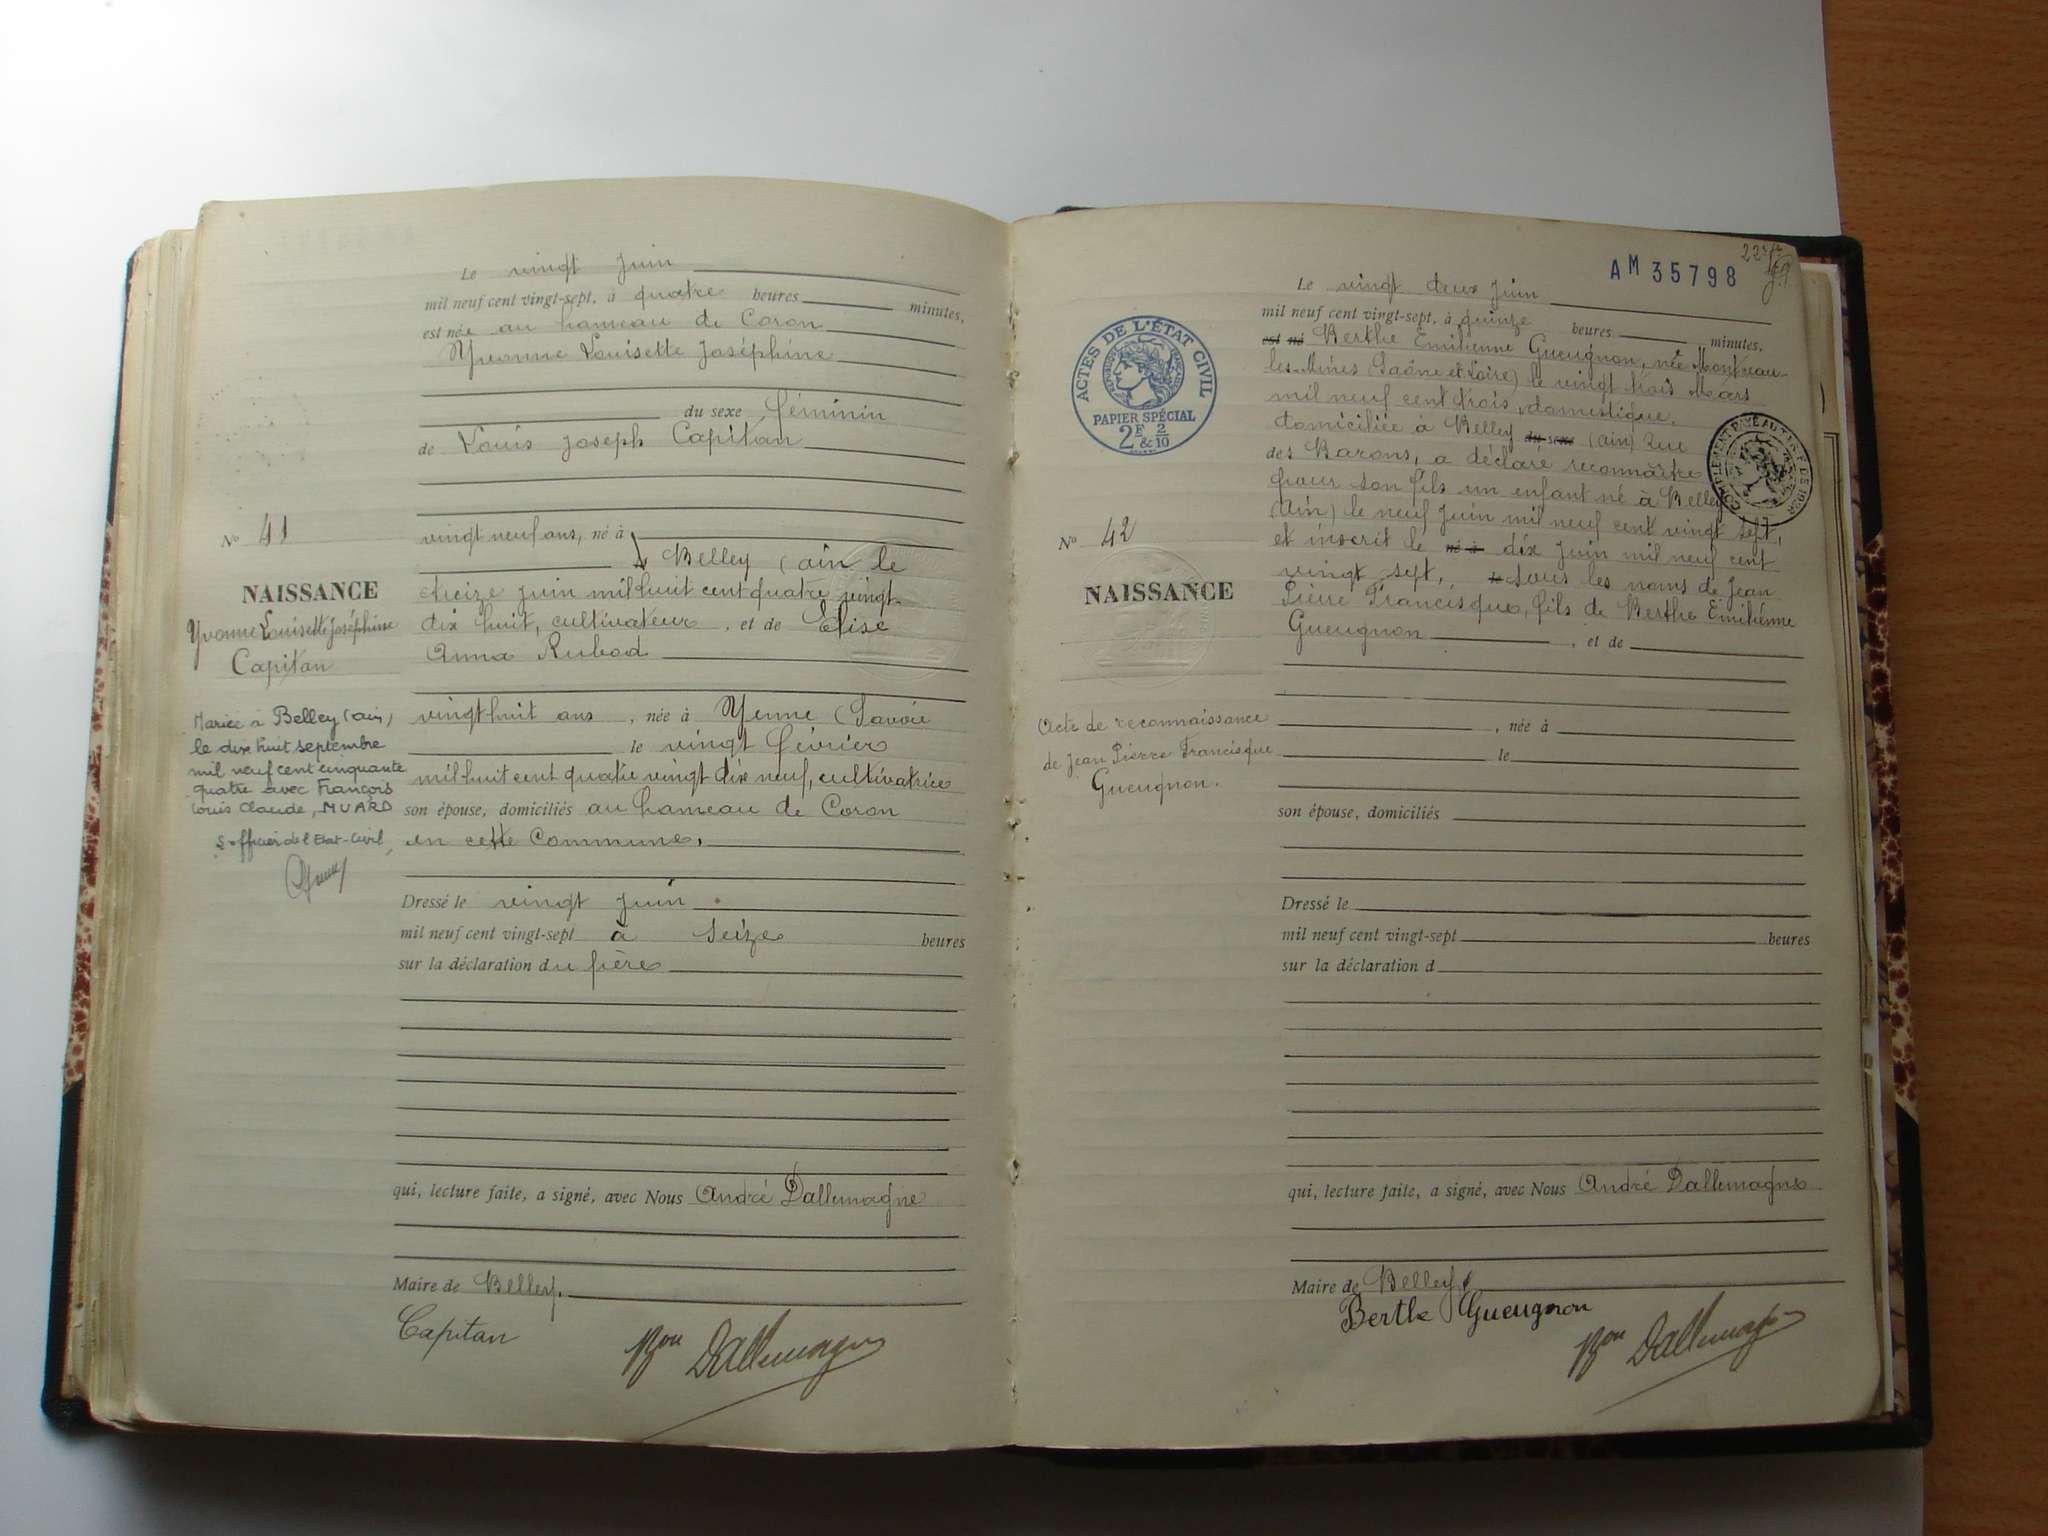 Le vingt Juin
mil neuf cent vingt-sept, à quatre heures minutes,
est née au hameau de Coron
Yvonne Louisette Joséphine
du sexe féminin
de Louis Joseph Capitan
vingt neuf ans, né à
Belley (ain le
treize Juin mil huit cent quatre vingt
dix huit, cultivateur, et de Elise
Anna Rubod
vingt huit ans, née à Yenne (Savoie
le vingt février
mil huit cent quatre vingt dix neuf, cultivatrice
son épouse, domiciliés au hameau de Coron
en cette Commune.
Dressé le vingt Juin
mil neuf cent vingt-sept à Seize heures
sur la déclaration du père
qui, lecture faite, a signé, avec Nous André Dallemagne
Maire de Belley.
Capitan
Bon Dallemagne
No 41
NAISSANCE
Yvonne Louisette Joséphine
Capitan
Mariée à Belley (ain)
le dix huit septembre
mil neuf cent cinquante
quatre avec François
Louis Claude, MUARD
officier de l'Etat-Civil
AM 35798
ACTES DE L'ÉTAT CIVIL
PAPIER SPÉCIAL
2F & 2/10
COMPLÉMENT PAYÉ AU T
Le vingt deux Juin
mil neuf cent vingt-sept, à quinze heures minutes,
est né Berthe Emilienne Gueugnon, née Montceau-
les-Mines (Saône et Loire) le vingt trois Mars
mil neuf cent trois, domestique,
domiciliée à Belley du sexe (ain) Rue
des Barons, a déclaré reconnaître
pour son fils un enfant né à Belley
(Ain) le neuf Juin mil neuf cent vingt sept,
et inscrit le né à dix Juin mil neuf cent
vingt sept, le sous les noms de Jean
Pierre Francisque, fils de Berthe Emilienne
Gueugnon, et de
, née à
le
son épouse, domiciliés
Dressé le
mil neuf cent vingt-sept heures
sur la déclaration d
qui, lecture faite, a signé, avec Nous André Dallemagne
Maire de Belley
Berthe Gueugnon
Bon Dallemagne
No 42
NAISSANCE
Acte de reconnaissance
de Jean Pierre Francisque
Gueugnon.